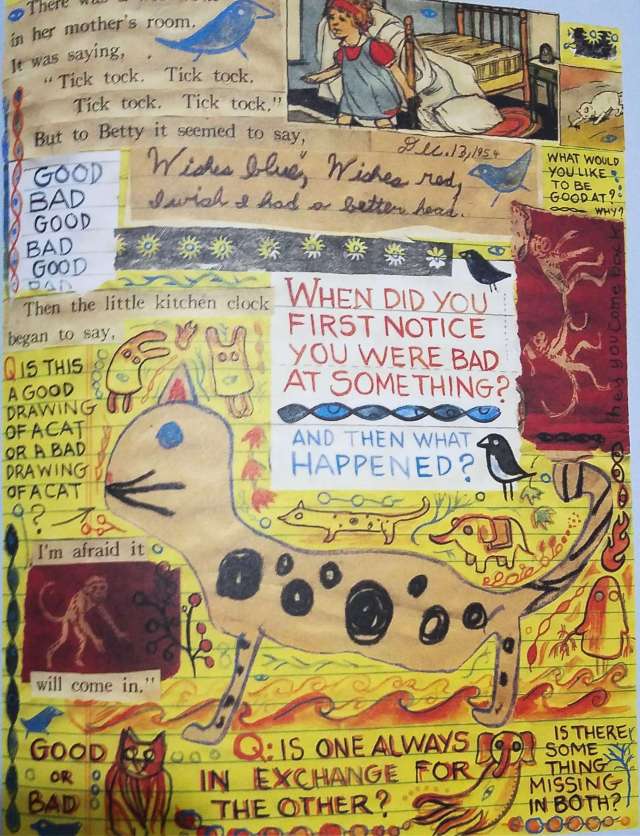 There was a
in her mother's room.
It was saying,
"Tick tock. Tick tock.
Tick tock. Tick tock."
But to Betty it seemed to say,
Dec. 13, 1954
Wishes blue, Wishes red,
I wish I had a better head.
WHAT WOULD
YOU LIKE
TO BE
GOOD AT?
WHY?
GOOD
BAD
GOOD
BAD
GOOD
BAD
they you come back
Then the little kitchen clock
began to say,
WHEN DID YOU
FIRST NOTICE
YOU WERE BAD
AT SOMETHING?
AND THEN WHAT
HAPPENED?
Q IS THIS
A GOOD
DRAWING
OF A CAT
OR A BAD
DRAWING
OF A CAT
?
I'm afraid it
will come in."
GOOD
OR
BAD
Q: IS ONE ALWAYS
IN EXCHANGE FOR
THE OTHER?
IS THERE
SOME
THING
MISSING
IN BOTH?